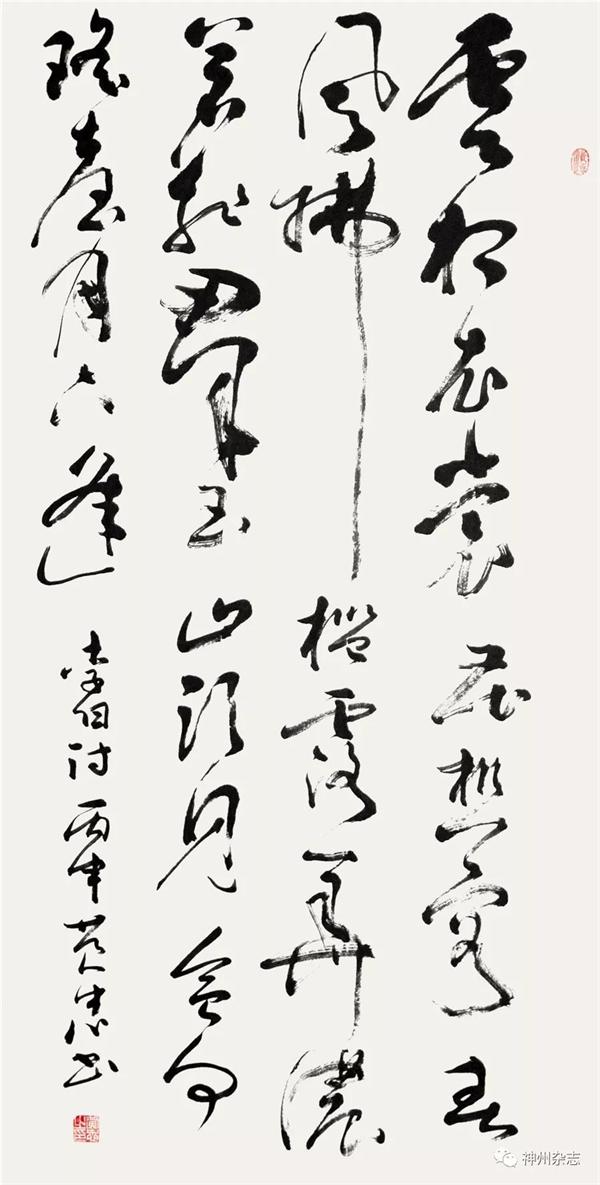 雲想衣裳花想容春
風拂檻露華濃
若非群玉山頭見會向
瑤臺月下逢
李白詩丙申書
神州杂志